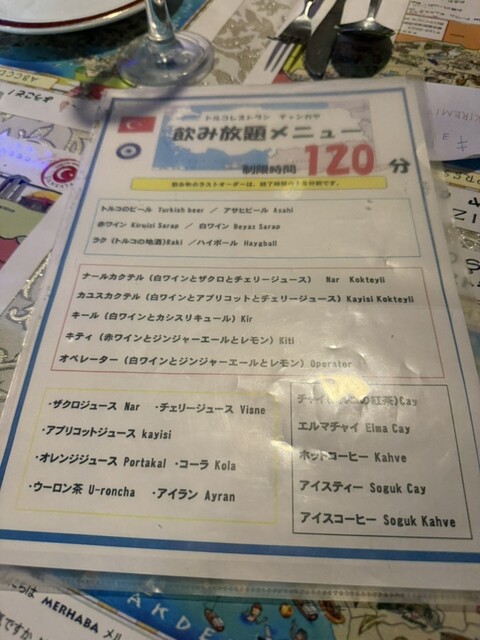 トルコレストラン チャンカヤ
飲み放題メニュー
制限時間 120 分
トルコのビール Turkish beer / アサヒビール Asahi
赤ワイン Kirmizi Sarap / 白ワイン Beyaz Sarap
ラク (トルコの地酒)Raki /ハイボール Haygball
ナールカクテル (白ワインとザクロとチェリージュース) Nar Kokteyli
カユスカクテル (白ワインとアプリコットとチェリージュース) Kayisi Kokteyli
キール (白ワインとカシスリキュール) Kir
キティ (赤ワインとジンジャーエールとレモン) Kiti
オペレーター (白ワインとジンジャーエールとレモン) Operator
・ザクロジュース Nar ・チェリージュース Visne
・アプリコットジュース kayisi
・オレンジジュース Portakal ・コーラ Kola
・ウーロン茶 U-roncha ・アイラン Ayran
チャイ(トルコの紅茶)Cay
エルマチャイ Elma Cay
ホットコーヒー Kahve
アイスティー Soguk Cay
アイスコーヒー Soguk Kahve
MERHABA
AKDE